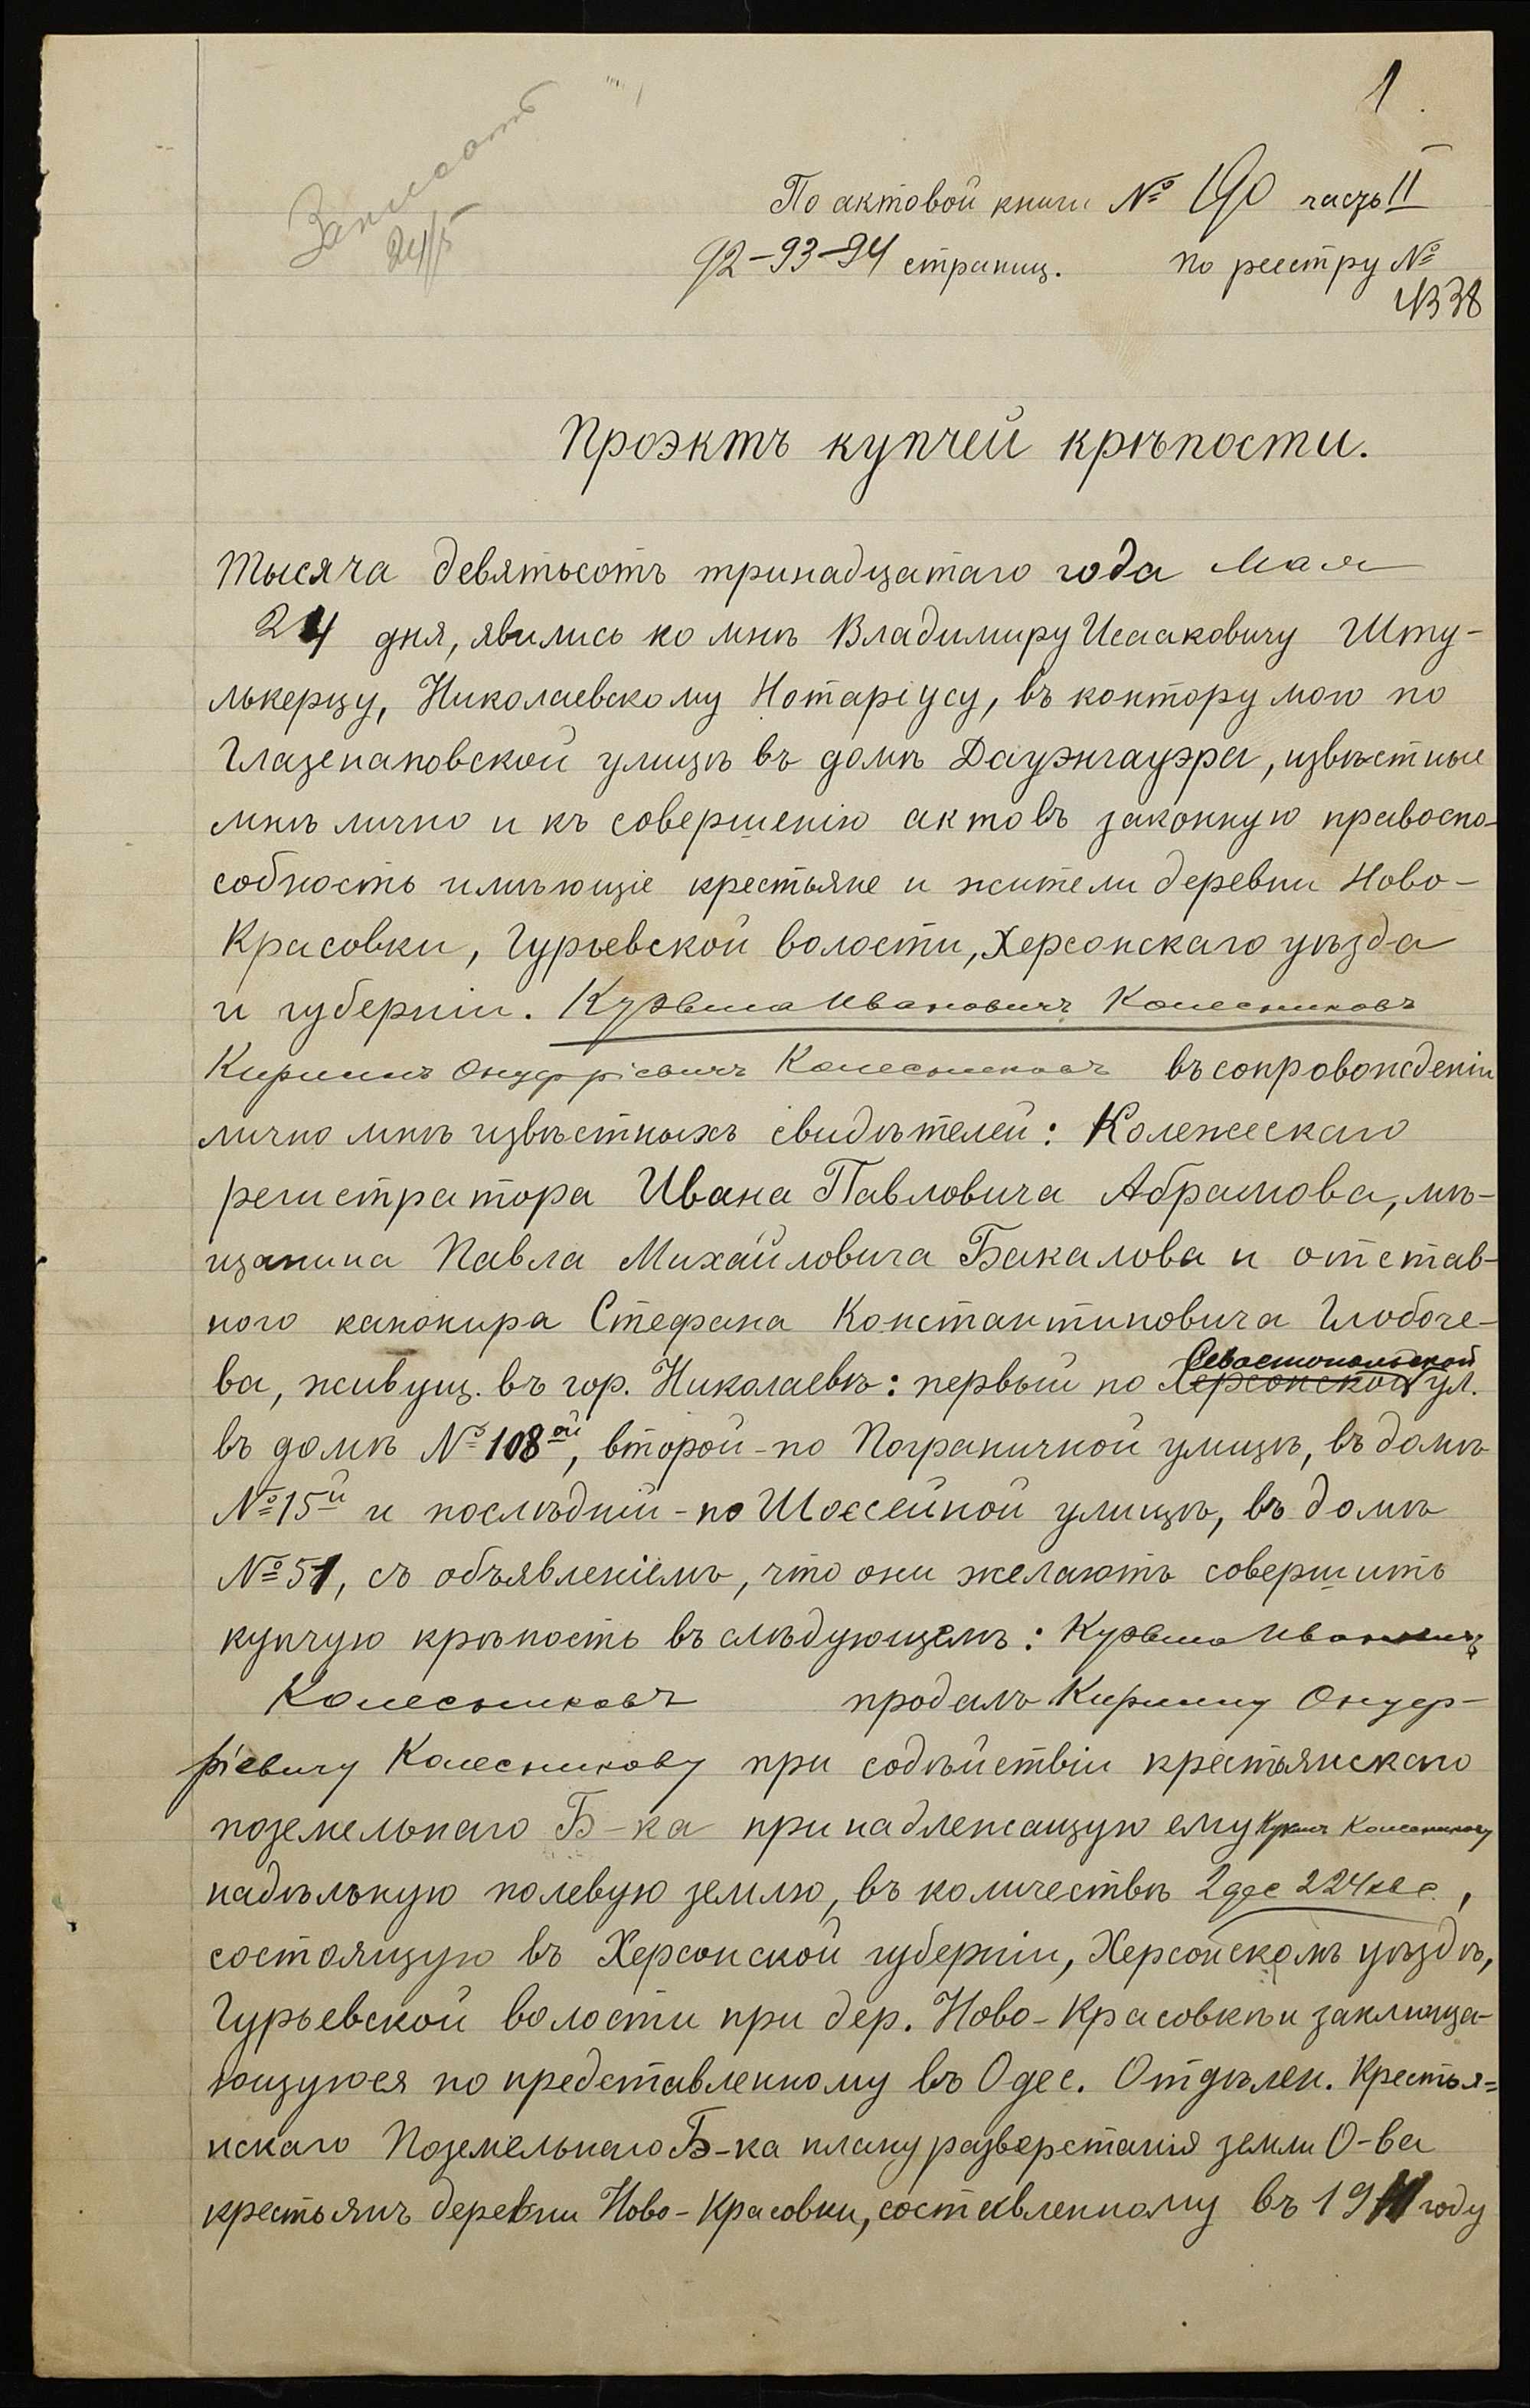 1
По актовой книги № 190 часть II
92-93-94 страниц. по реестру №
4338
Проэктъ купчей крѣпости.
Тысяча девятьсотъ тринадцатаго года мая
24 дня, явились ко мнѣ Владимиру Исааковичу Шту-
лькерцу, Николаевскому Нотаріусу, въ контору мою по
Глазенаповской улицѣ въ домѣ Дауэнгауэра, извѣстные
мнѣ лично и къ совершенію актовъ законную правоспо-
собность имѣющіе крестьяне и жители деревни Ново-
Красовки, Гурьевской волости, Херсонскаго уѣзда
и губерніи. Кузьма Ивановичъ Колесниковъ
Кириллъ Онуфріевичъ Колесниковъ въ сопровожденіи
лично мнѣ извѣстныхъ свидѣтелей: Колежескаго
регистратора Ивана Павловича Абрамова, мѣ-
щанина Павла Михайловича Бакалова и отстав-
ного канонира Стефана Константиновича Глобоче-
Севастопольской
ва, живущ. въ гор. Николаевѣ: первый по Херсонской ул.
въ домѣ № 108ой, второй - по Пограничной улицѣ, въ домѣ
№ 15й и послѣдній - по Шоссейной улицѣ, въ домѣ
№ 51, съ объявленіемъ, что они желаютъ совершить
купчую крѣпость въ слѣдующемъ: Кузьма Ивановичъ
Колесниковъ продалъ Кириллу Онуф-
ріевичу Колесникову при содѣйствіи крестьянскаго
поземельнаго Б-ка принадлежащую ему Кузьмѣ Колесникову
надѣльную полевую землю, въ количествѣ 2 дес 224 кв с,
состоящую въ Херсонской губерніи, Херсонскомъ уѣздѣ,
Гурьевской волости при дер. Ново-Красовкѣ и заключа-
ющуюся по представленному въ Одес. Отдѣлен. Крестья=
нскаго Поземельнаго Б-ка плану разверстанія земли О-ва
крестьянъ деревни Ново-Красовки, составленному въ 1911 году